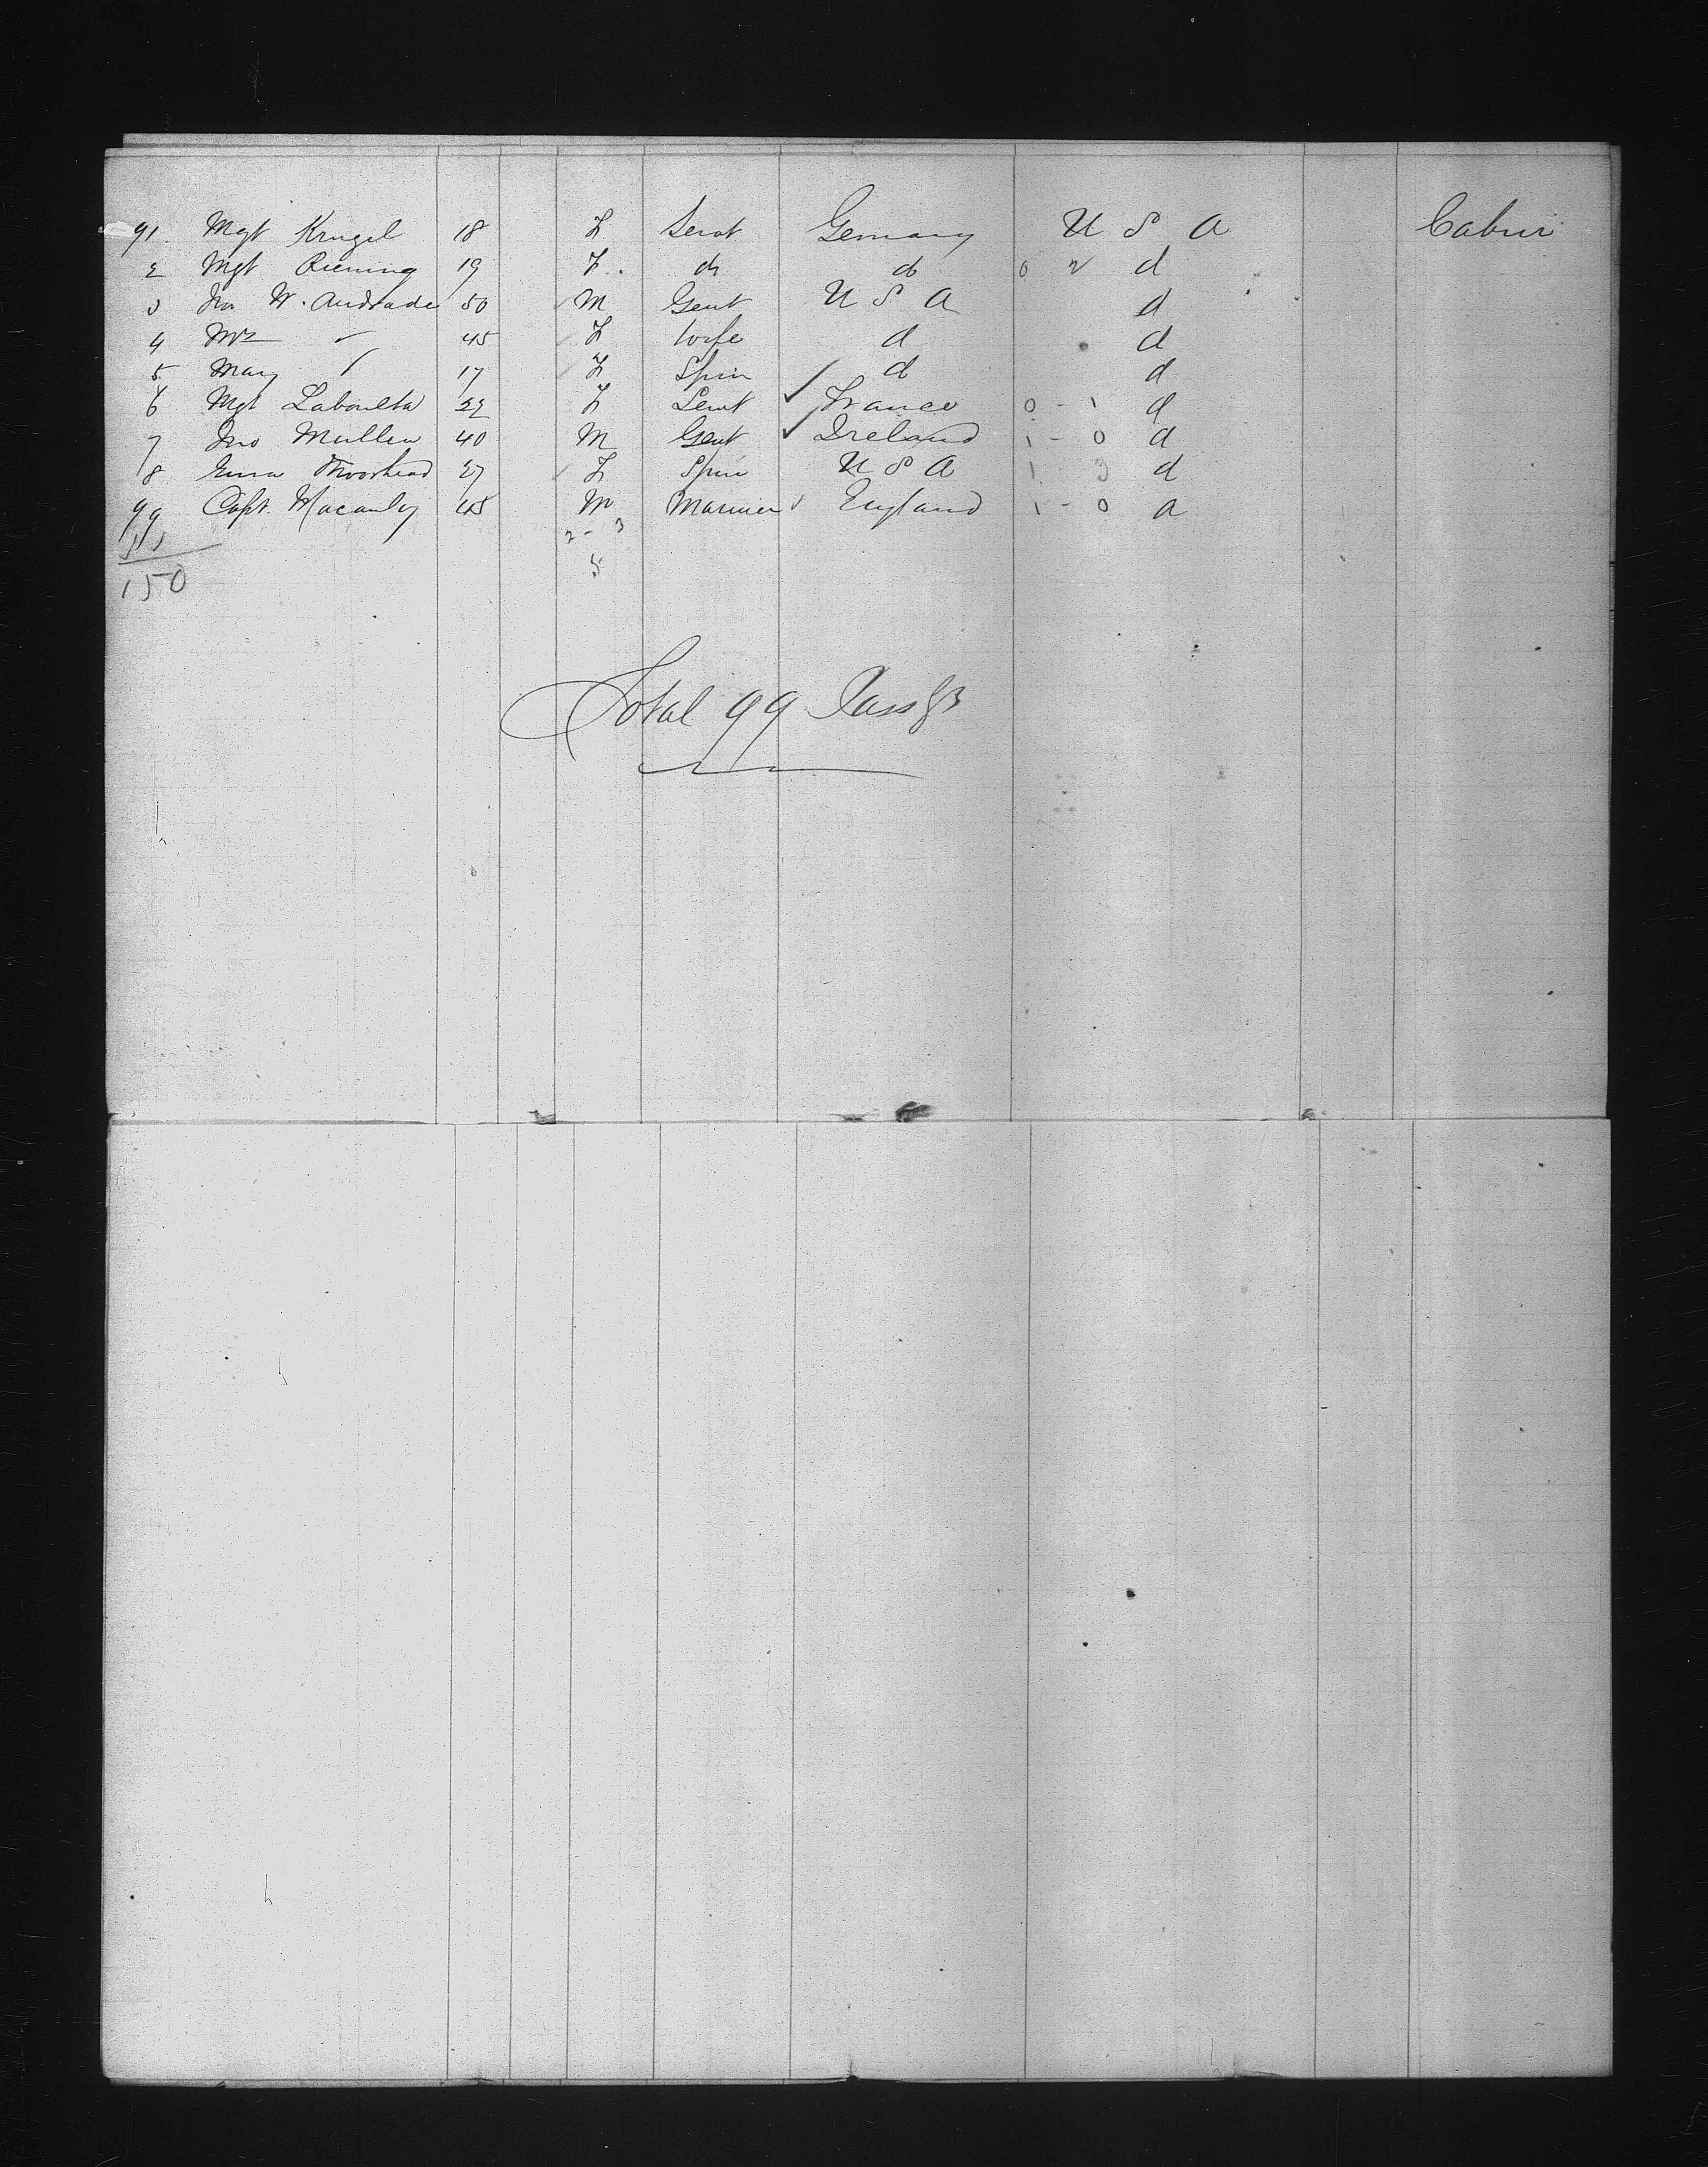 91. Mgt Krugel 18 F. Servt Germany U S A Cabin
2 Mgt Riening 19 F. do do 0 2 d
3 Jno W. Andrade 50 M Gent U S A d
4 Mrs " 45 F Wife d d
5 May " 17 F Spin d d
6 Mgt 22 F Servt ✓ France 0 - 1 d
7 Jno Mullen 40 M Gent ✓ Ireland 1 - 0 d
8 Emma Moorhead 27 F Spin U S A 1 3 d
99 Capt. Macaulay 45 M Mariner England 1 - 0 d
51 2 - 3
150 5
Total 99 Passgrs